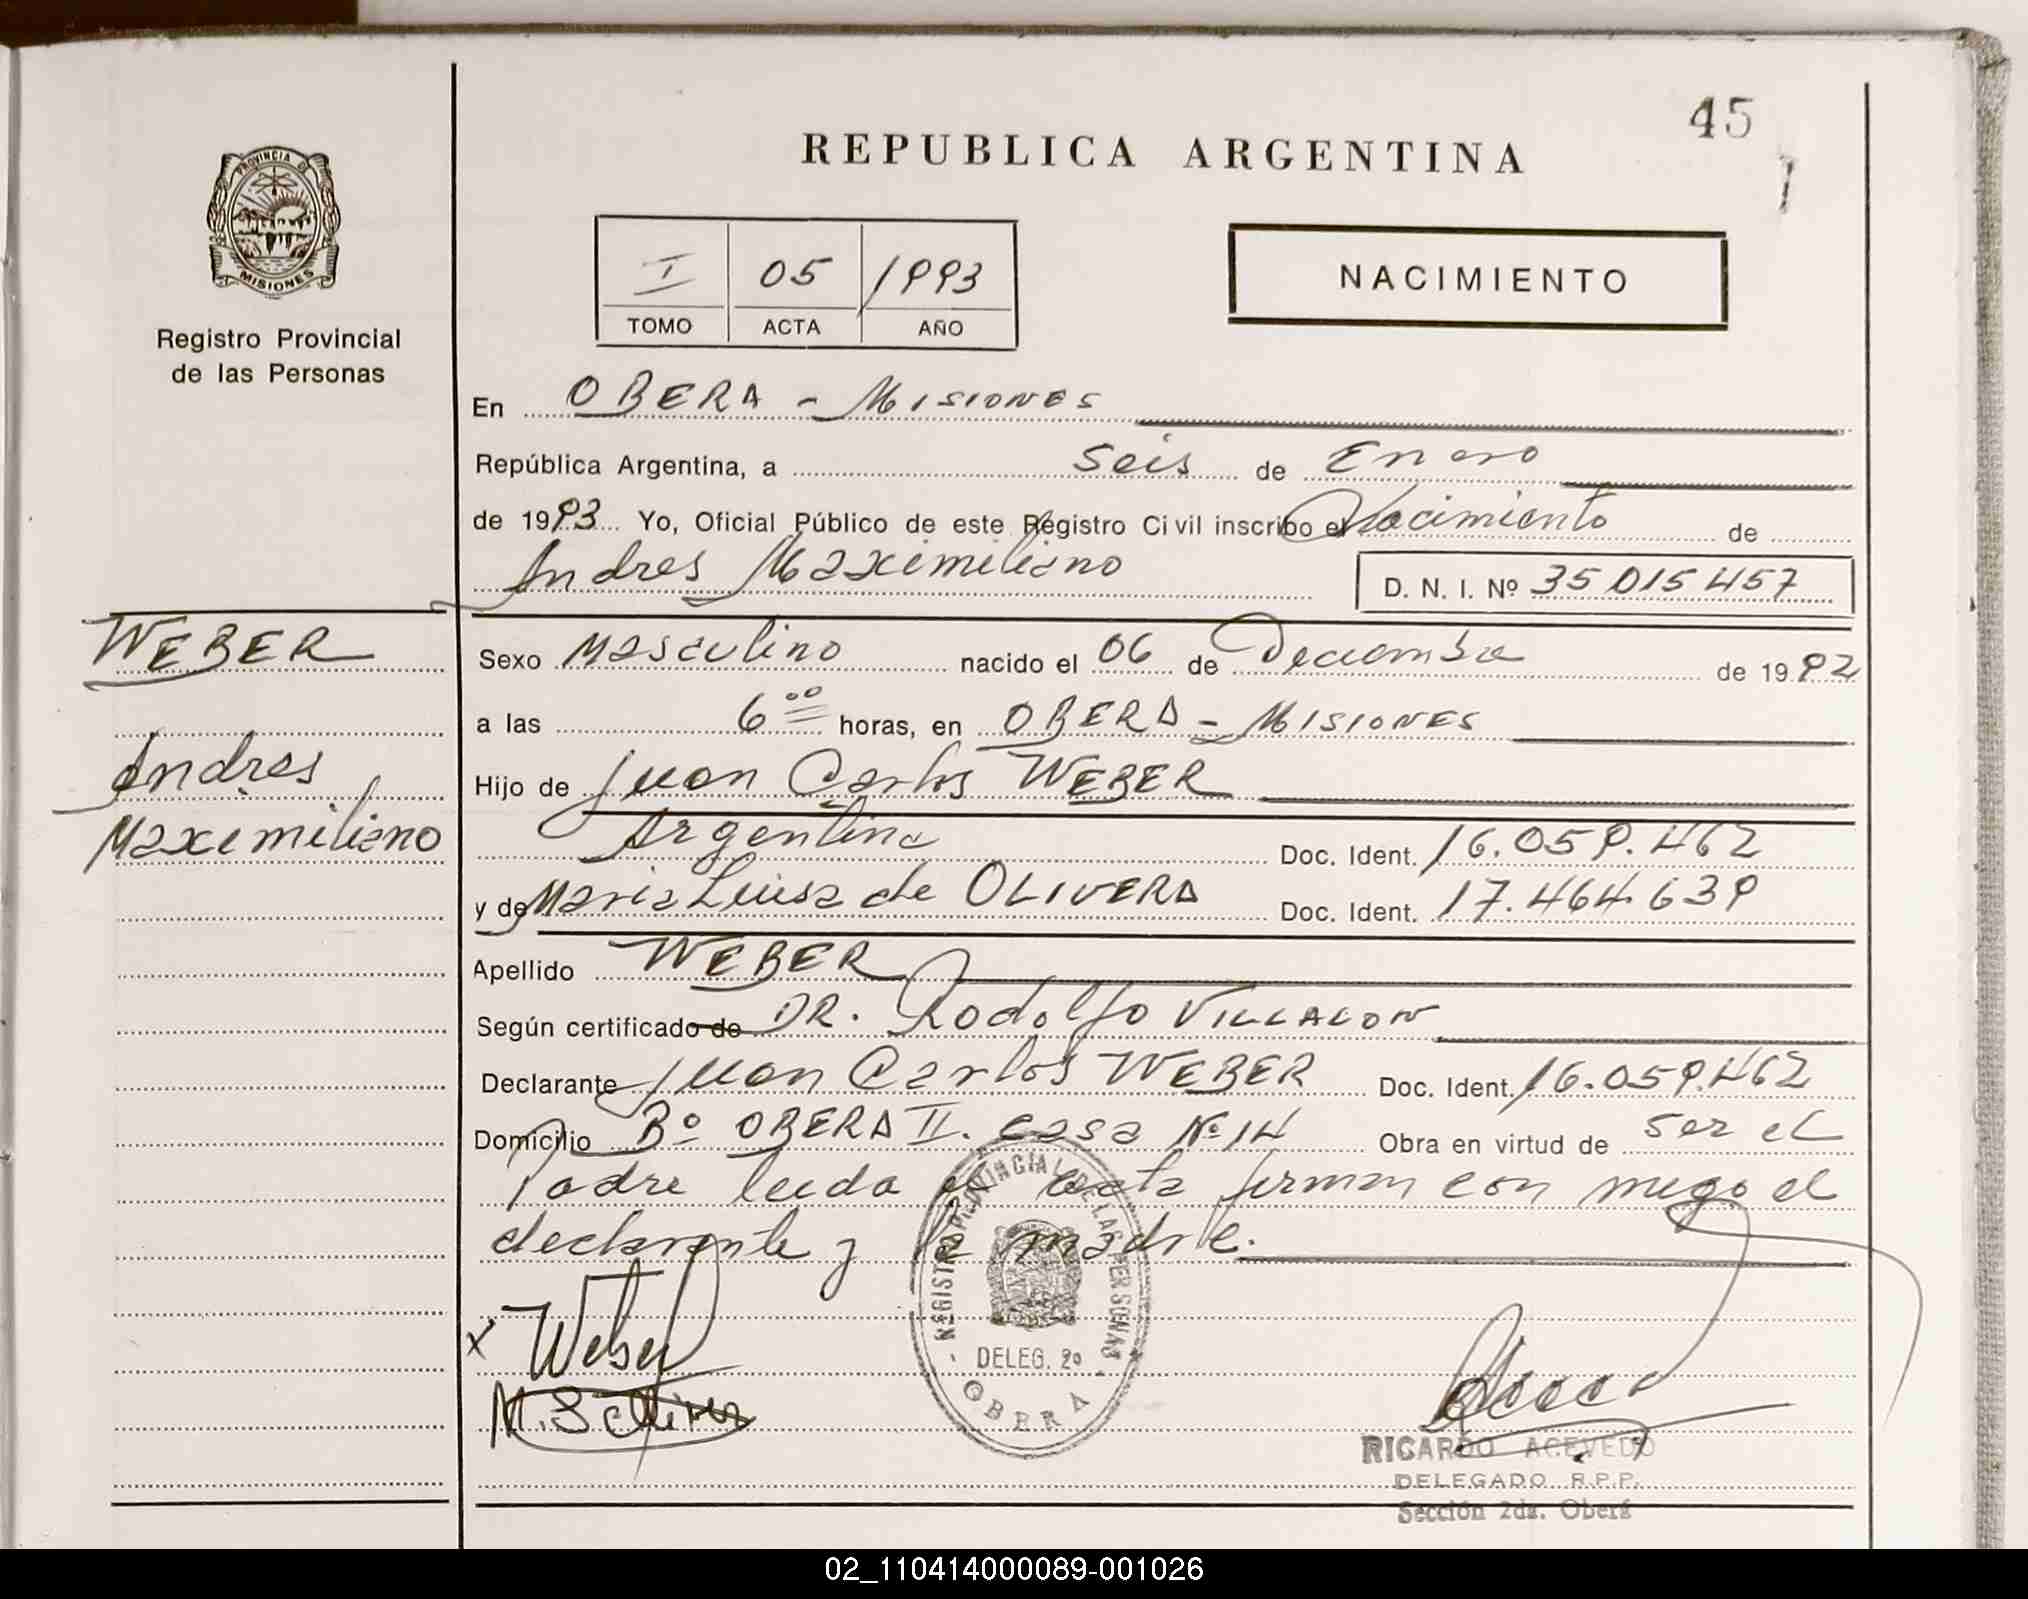 45
1
REPUBLICA ARGENTINA
PROVINCIA DE
MISIONES
Registro Provincial
de las Personas
I 05 1993
TOMO ACTA AÑO
NACIMIENTO
En OBERA - MISIONES
República Argentina, a Seis de Enero
de 1993 Yo, Oficial Público de este Registro Civil inscribo el Nacimiento de
Andres Maximiliano D. N. I. Nº 35 015 457
WEBER
Andres
Maximiliano
Sexo Masculino nacido el 06 de Deciembre de 1992
a las 6 00 horas, en OBERA - MISIONES
Hijo de Juan Carlos WEBER
Argentino Doc. Ident. 16.059.462
y de Maria Luisa de OLIVERA Doc. Ident. 17.464.639
Apellido WEBER
Según certificado de DR. Rodolfo VILLALON
Declarante Juan Carlos WEBER Doc. Ident. 16.059.462
Domicilio Bº OBERA II. casa Nº 14 Obra en virtud de ser el
Padre leida el acta firman con migo el
declarante y la madre.
X Weber
REGISTRO PROVINCIAL DE LAS PERSONAS
DELEG. 2º
OBERA
RICARDO ACEVEDO
DELEGADO R.P.P.
Sección 2da. Oberá
02_110414000089-001026